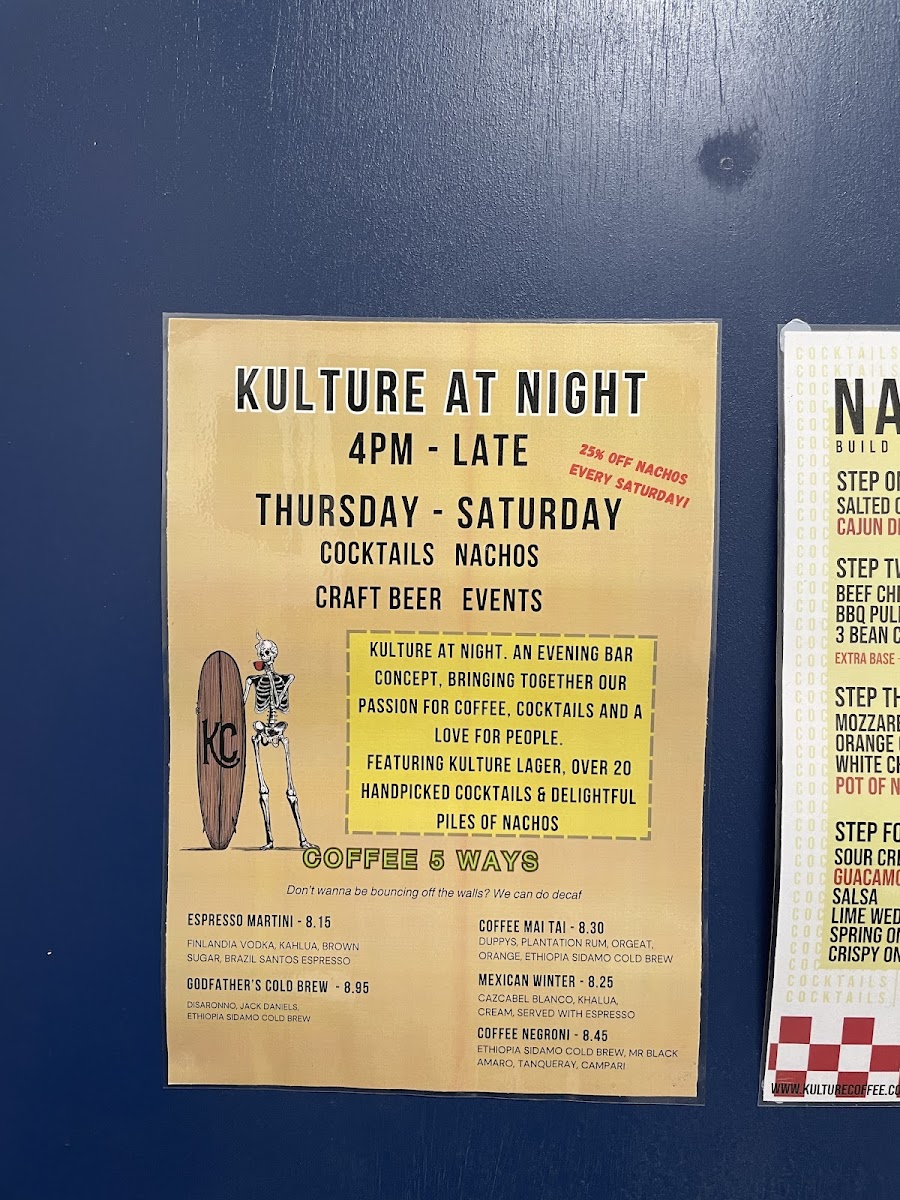 KULTURE AT NIGHT
4PM - LATE
25% OFF NACHOS
EVERY SATURDAY!
THURSDAY - SATURDAY
COCKTAILS NACHOS
CRAFT BEER EVENTS
KC
KULTURE AT NIGHT. AN EVENING BAR
CONCEPT, BRINGING TOGETHER OUR
PASSION FOR COFFEE, COCKTAILS AND A
LOVE FOR PEOPLE.
FEATURING KULTURE LAGER, OVER 20
HANDPICKED COCKTAILS & DELIGHTFUL
PILES OF NACHOS
COFFEE 5 WAYS
Don't wanna be bouncing off the walls? We can do decaf
ESPRESSO MARTINI - 8.15
FINLANDIA VODKA, KAHLUA, BROWN
SUGAR, BRAZIL SANTOS ESPRESSO
GODFATHER'S COLD BREW - 8.95
DISARONNO, JACK DANIELS,
ETHIOPIA SIDAMO COLD BREW
COFFEE MAI TAI - 8.30
DUPPYS, PLANTATION RUM, ORGEAT,
ORANGE, ETHIOPIA SIDAMO COLD BREW
MEXICAN WINTER - 8.25
CAZCABEL BLANCO, KHALUA,
CREAM, SERVED WITH ESPRESSO
COFFEE NEGRONI - 8.45
ETHIOPIA SIDAMO COLD BREW, MR BLACK
AMARO, TANQUERAY, CAMPARI
COCKTAILS
COCKTAILS
NA
BUILD
STEP
SALTED
CAJUN
STEP
BEEF
BBQ
3 BEAN
EXTRA BASE -
STEP
ORANGE
WHITE
POT OF
STEP
SOUR
SALSA
LIME
SPRING
CRISPY
COCKTAILS
COCKTAILS
WWW.KULTURECOFFEE.CO